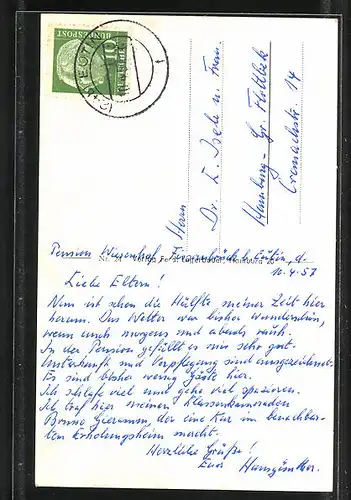 DEUTSCHE
BUNDESPOST
10
Herrn
Dr. L. Isele u. Frau
Hamburg - Gr. Flottbek
14
Pension Wiesenhof, Eutin, d.
10.4.57
Liebe Eltern!
Nun ist schon die Hälfte meiner Zeit hier
herum. Das Wetter war bisher wunderschön,
wenn auch morgens und abends rauh.
In der Pension gefällt es mir sehr gut.
Unterkunft und Verpflegung sind ausgezeichnet.
Es sind bisher wenig Gäste hier.
Ich schlafe viel und gehe viel spazieren.
Ich traf hier meinen Klassenkameraden
Bruno, der eine Kur im benachbar-
ten Erholungsheim macht.
Herzliche Grüße!
Euer Hansgünther.